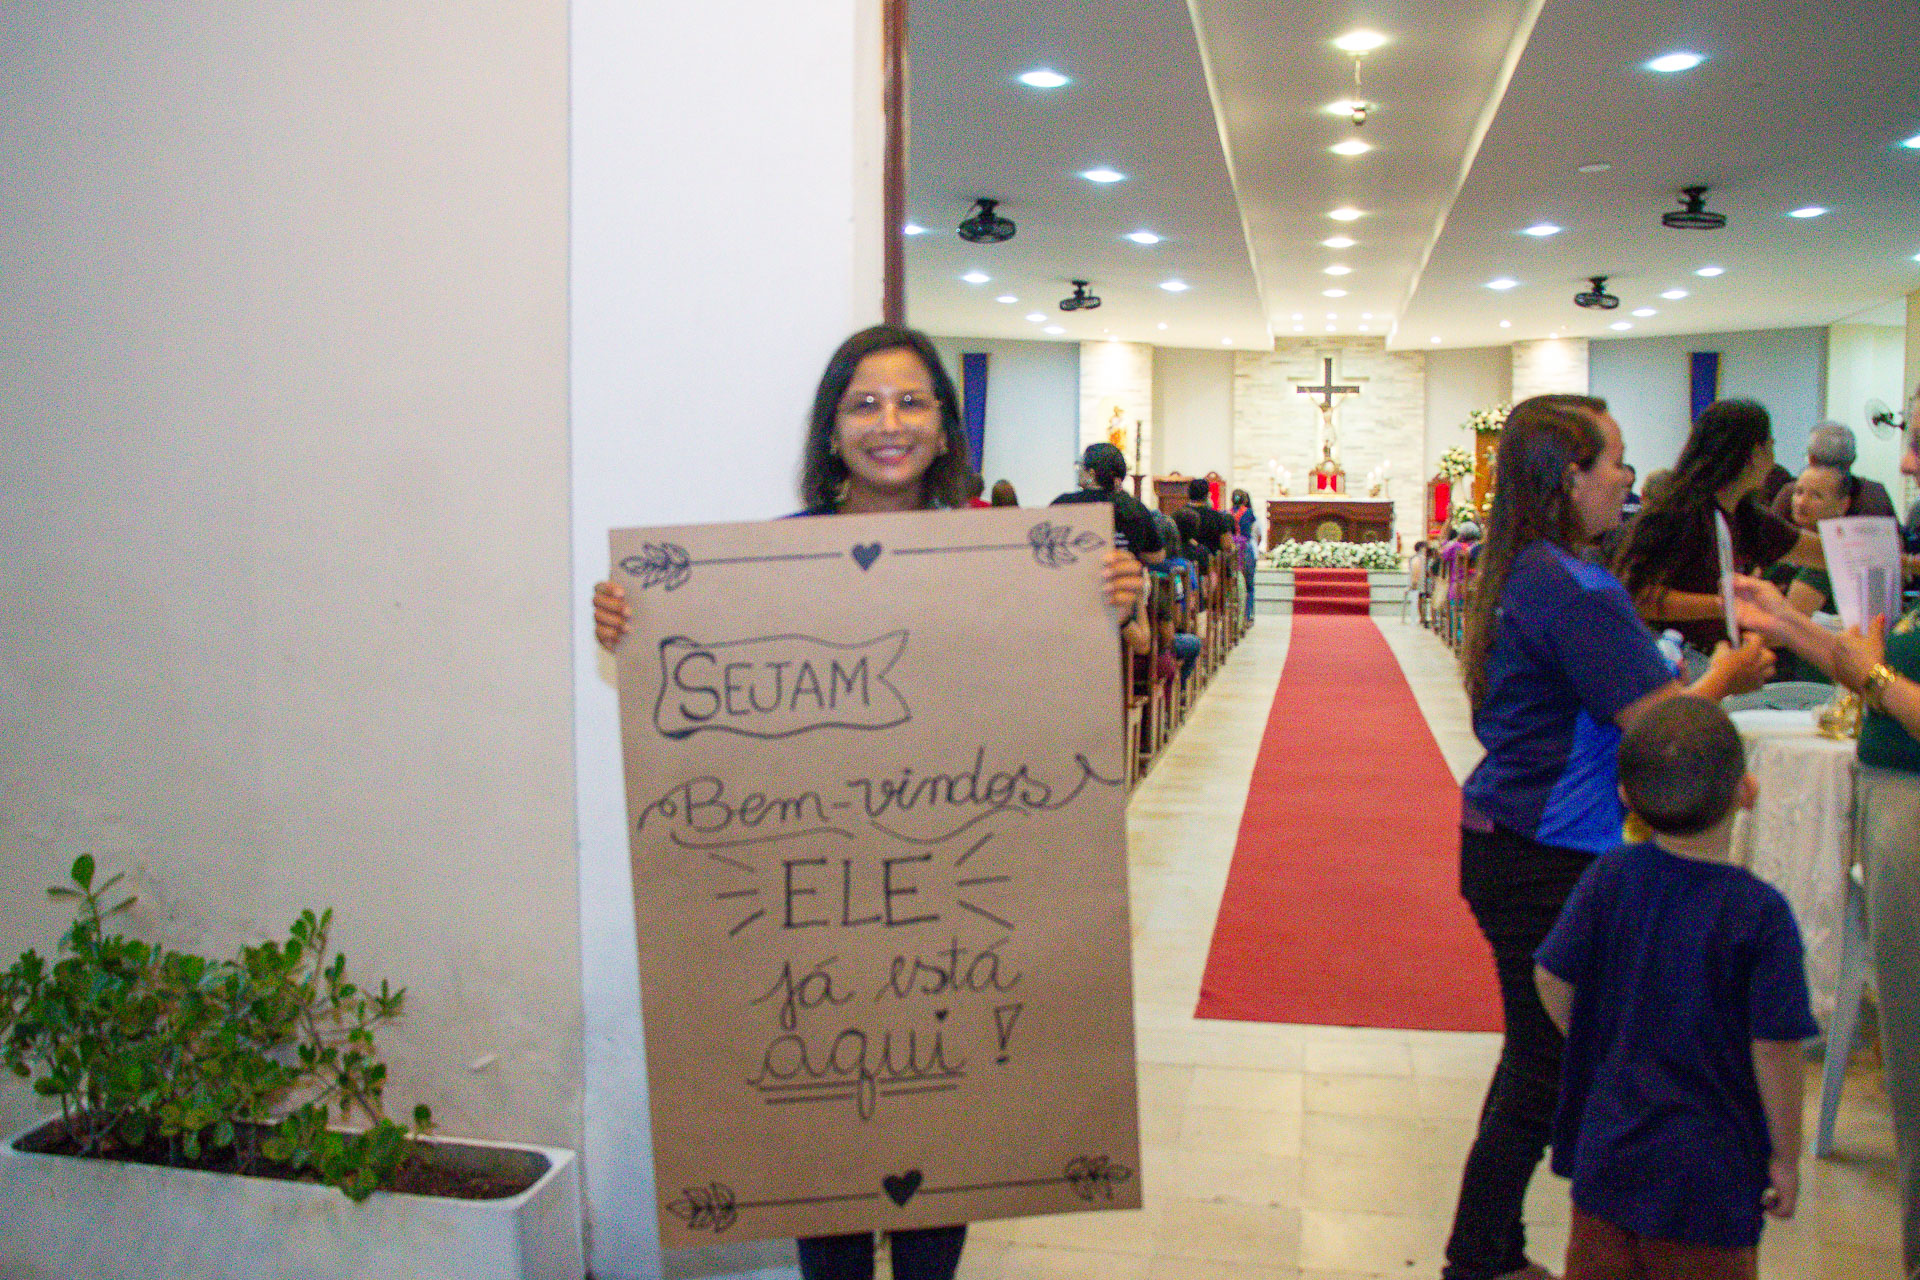 SEJAM
Bem-vindos
ELE
já está
aqui!